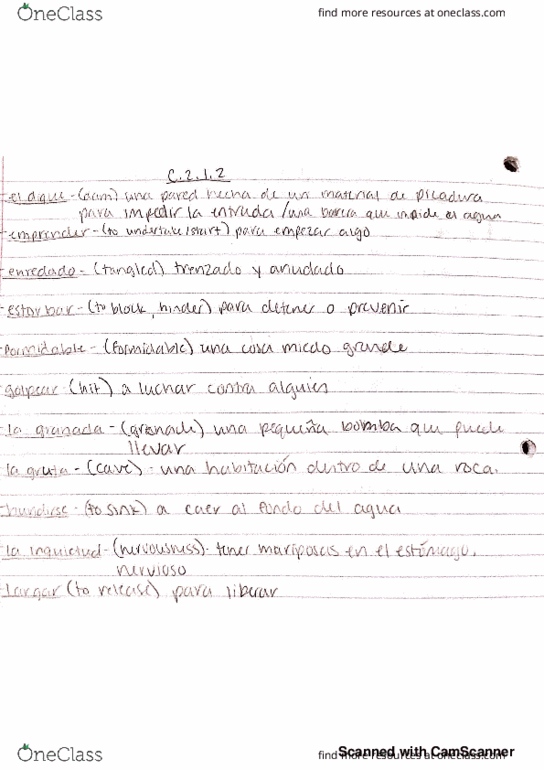 OneClass
find more resources at oneclass.com
C.2.1.2
el dique - (dam) una pared hecha de un material de picadura
para impedir la entrada / una barera que impide el agua
emprender - (to undertake/start) para empezar algo
enredado - (tangled) trenzado y anudado
estorbar - (to block, hinder) para detener o prevenir
formidable - (formidable) una cosa miedo grande
golpear - (hit) a luchar contra alguien
la granada - (grenade) una pequeña bomba que puede
llevar
la gruta - (cave) - una habitación dentro de una roca.
hundirse - (to sink) a caer al fondo del agua
la inquietud - (nervousness) - tener mariposas en el estómago,
nervioso
largar (to release) para liberar
OneClass
find more resources at oneclass.com
Scanned with CamScanner